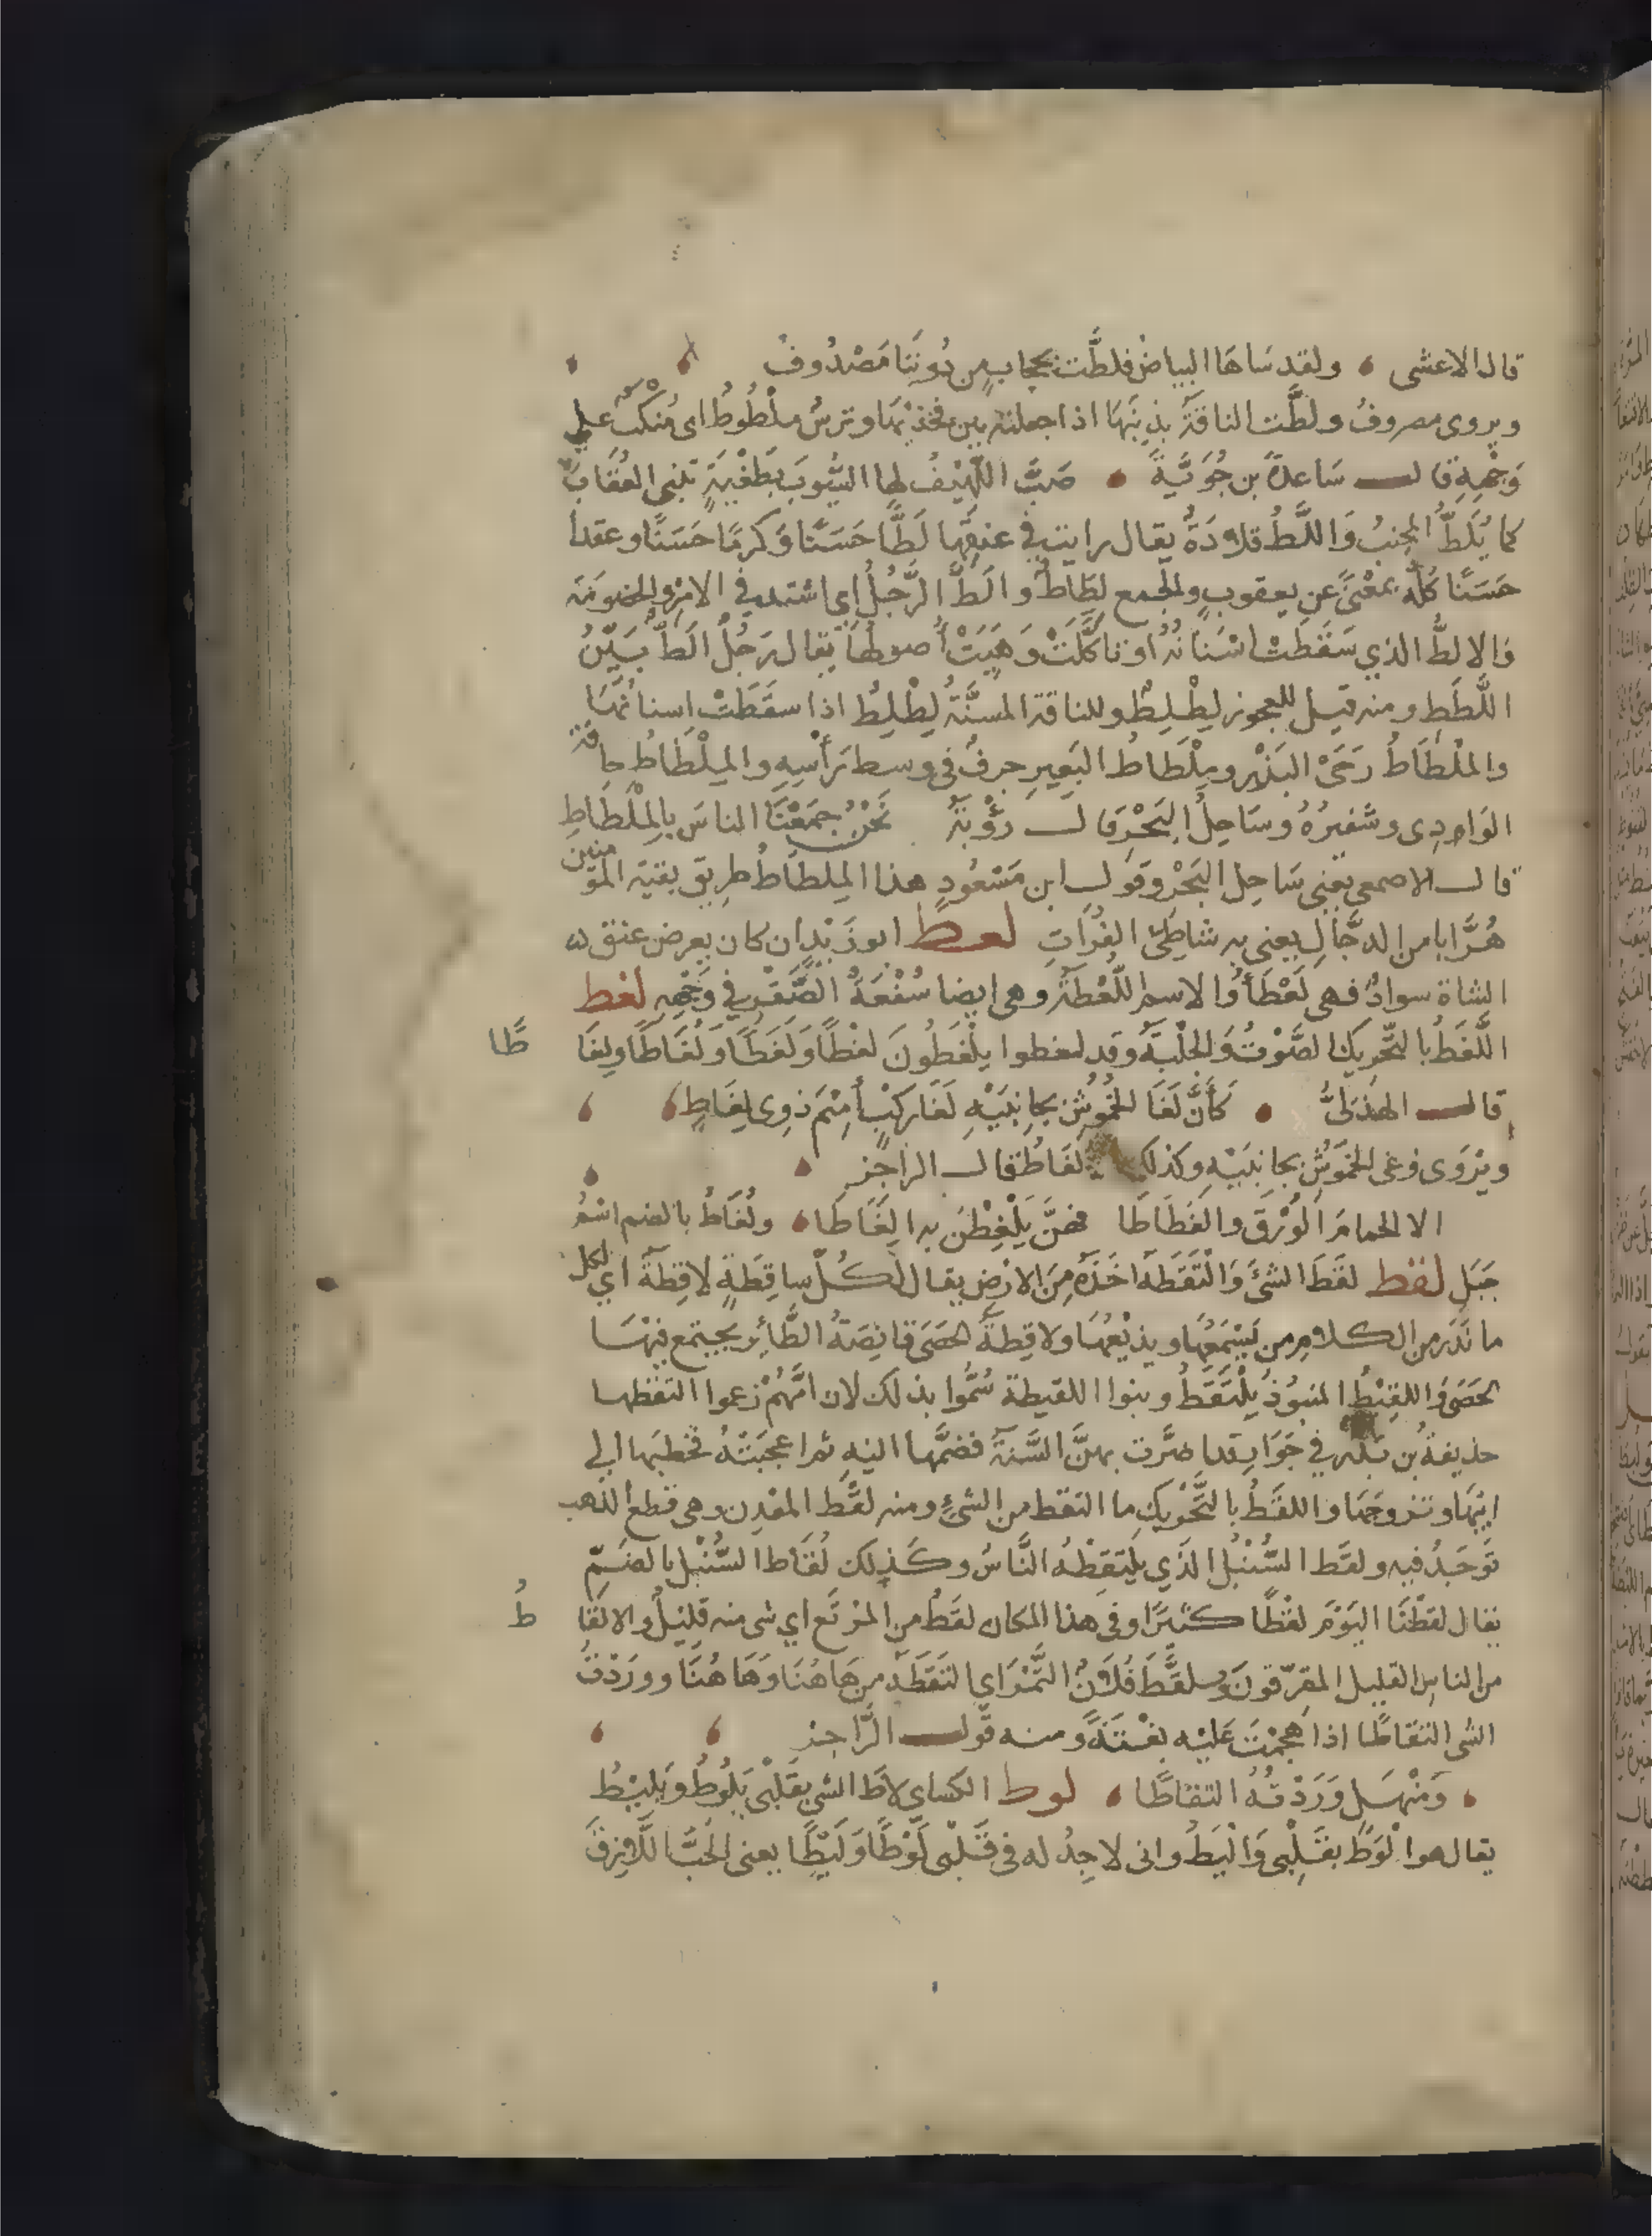 قال الاعشى ۰ ولقد سَاهَا البياضُ فلطَّت بحجابٍ مِن دُونِنَا مَصْدُوفُ
ويروى مصروفُ ولطَّت الناقةُ بذنبَهَا اذا جعلته بين فخذيْهَا وترسٌ ملْطُوطٌ اى مُنكَبٌّ على
وَجْهِهِ قال سَاعدةُ بن جُوَيَّةَ ۰ صَبَّ اللَّهِيْفُ لها السُّبُوبَ بِطَغْيَةٍ تنبى العُقَابَ
كما يُلَطُّ المِجنبُ وَاللَّطُّ قلادَةٌ يقال رايت فى عنقِهَا لَطًّا حَسَنًا وَكرمًا حَسَنًا وعقدا
حَسَنًا كُلُّه بمعْنىً عن يعقوب والجمع لِطَاطٌ والَطَّ الرَّجُلُ اي اشتد في الامْرِ والخصومَة
وَالالطُّ الذي سَقَطَتْ اسْنَانُهُ او تاكَّلَتْ وَبَقِيَتْ اصولُهَا يقال رَجُلٌ الَطُّ بَيِّنُ
اللَّطَطِ ومنه قيل للعجوز لِطْلِطٌ وللناقة المسنَّةُ لِطْلِطٌ اذا سقَطَتْ اسنانُهَا
والمِلْطَاطُ رَحَىْ البَزْرِ ومِلْطَاطُ البَعِيرِ حرفٌ فى وسط رَأْسِهِ والمِلْطَاطُ حافة
الوَادِى وشفيرُهُ وسَاحِلُ البَحْرِ قال رُؤْبَةُ نَحْنُ جمَعْنَا الناسَ بِالمِلْطَاطِ
قال الاصمعى يَعْنِى سَاحِل البَحْرِ وقول ابن مَسْعُودٍ هذا المِلطَاطُ طريق بقية المؤمنين
هُرَّابا من الدجَّالِ يعنى به شاطِئَ الفُرَاتِ لعط ابو زَيْدٍ ان كان بعرض عنق
الشاة سوادٌ فهى لَعْطَاءُ وَالاسم اللُّعْطَةُ وهى ايضا سُفْعَةُ الصَّقْرِ في وَجْهِهِ لغط
اللَّغَطُ بالتَّحْرِيكِ الصَّوْتُ وَالجلَبَةُ وقد لغطوا يلْغَطُونَ لغْطًا وَلَغَطًا وَلُغَاطًا ولِغَاطًا
قال الهذلىُّ ۰ كَأَنَّ لَغَا الخُمُوشِ بجانِبَيْهِ لَغَا رَكْبٍ أُمَيْمَ ذوِى لِغَاطِ
ويُرْوَى وغى الخمُوشِ بجانبَيْهِ وكذلك لغَاطُ قال الراجز
الا الحمامَ الوُرْقَ والغَطَاطَا فهنَّ يَلْغِطْنَ به الِغَاطَا ۰ ولُغَاطٌ بالضم اسْمُ
جَبَلٍ لقط لقَطَ الشئَ وَالْتَقَطَهُ اخَذَهُ مِنَ الارْضِ يقال لكُلِّ ساقِطَةٍ لاقِطَةٌ اي لكل
ما نَدَرَ من الكلام من يَسْمَعُهَا ويذيْعُهَا ولاقِطَةُ الحصَى قانِصَةُ الطَّائِرِ يجتمع فيْهَا
الحصَى وَاللقِيْطُ المنبُوذُ يُلْتَقَطُ وبنوا اللقيطة سُمُّوا بذلك لان امَّهُمْ زعموا التقطها
حذيفةُ بن بَدْرٍ في جَوَارٍ قد اضرَّت بهنَّ السَّنةُ فضمَّها اليْهِ ثم اعجبَتْهُ فخطبَها الى
ابيْهَا وتزوجَهَا واللقَطُ بالتَّحْرِيكِ ما التقط من الشئِ ومنه لقَطُ المعْدِن وهى قطع الذهب
تُوجَدُ فيه ولقَط السُّنْبُلِ الَّذي يلتَقِطُهُ النَّاسُ وكَذلك لُقَاط السُّنْبُل بالضَمِّ
يقال لقطْنَا اليَوْمَ لقَطًا كثيرًا وفى هذا المكان لقَطٌ من المرْتَع اي شى منه قَلِيْلٌ والالقَاطُ
من الناسِ القليل المتفرّقونَ وَتلقَّطَ فُلَانٌ التَّمْرَ اى التقَطَهُ من هَاهُنَا وَهَاهُنَا ووَرَدْتُ
الشى التقاطًا اذا هجمْتَ عَليْه بغْتَةً ومنه قول الرَّاجز
۰ وَمَنْهَلٍ وَرَدْتُهُ التقاطًا ۰ لوط الكساى لاطَ الشى بقَلْبِى يَلُوطُ وَيَلِيْطُ
يقال هو الْوَطُ بقَلْبِى وَالْيَطُ وانى لاجِدُ له فى قَلْبى لَوْطًا وَلَيْطًا يعنى الحُبَّ اللَّازِقَ